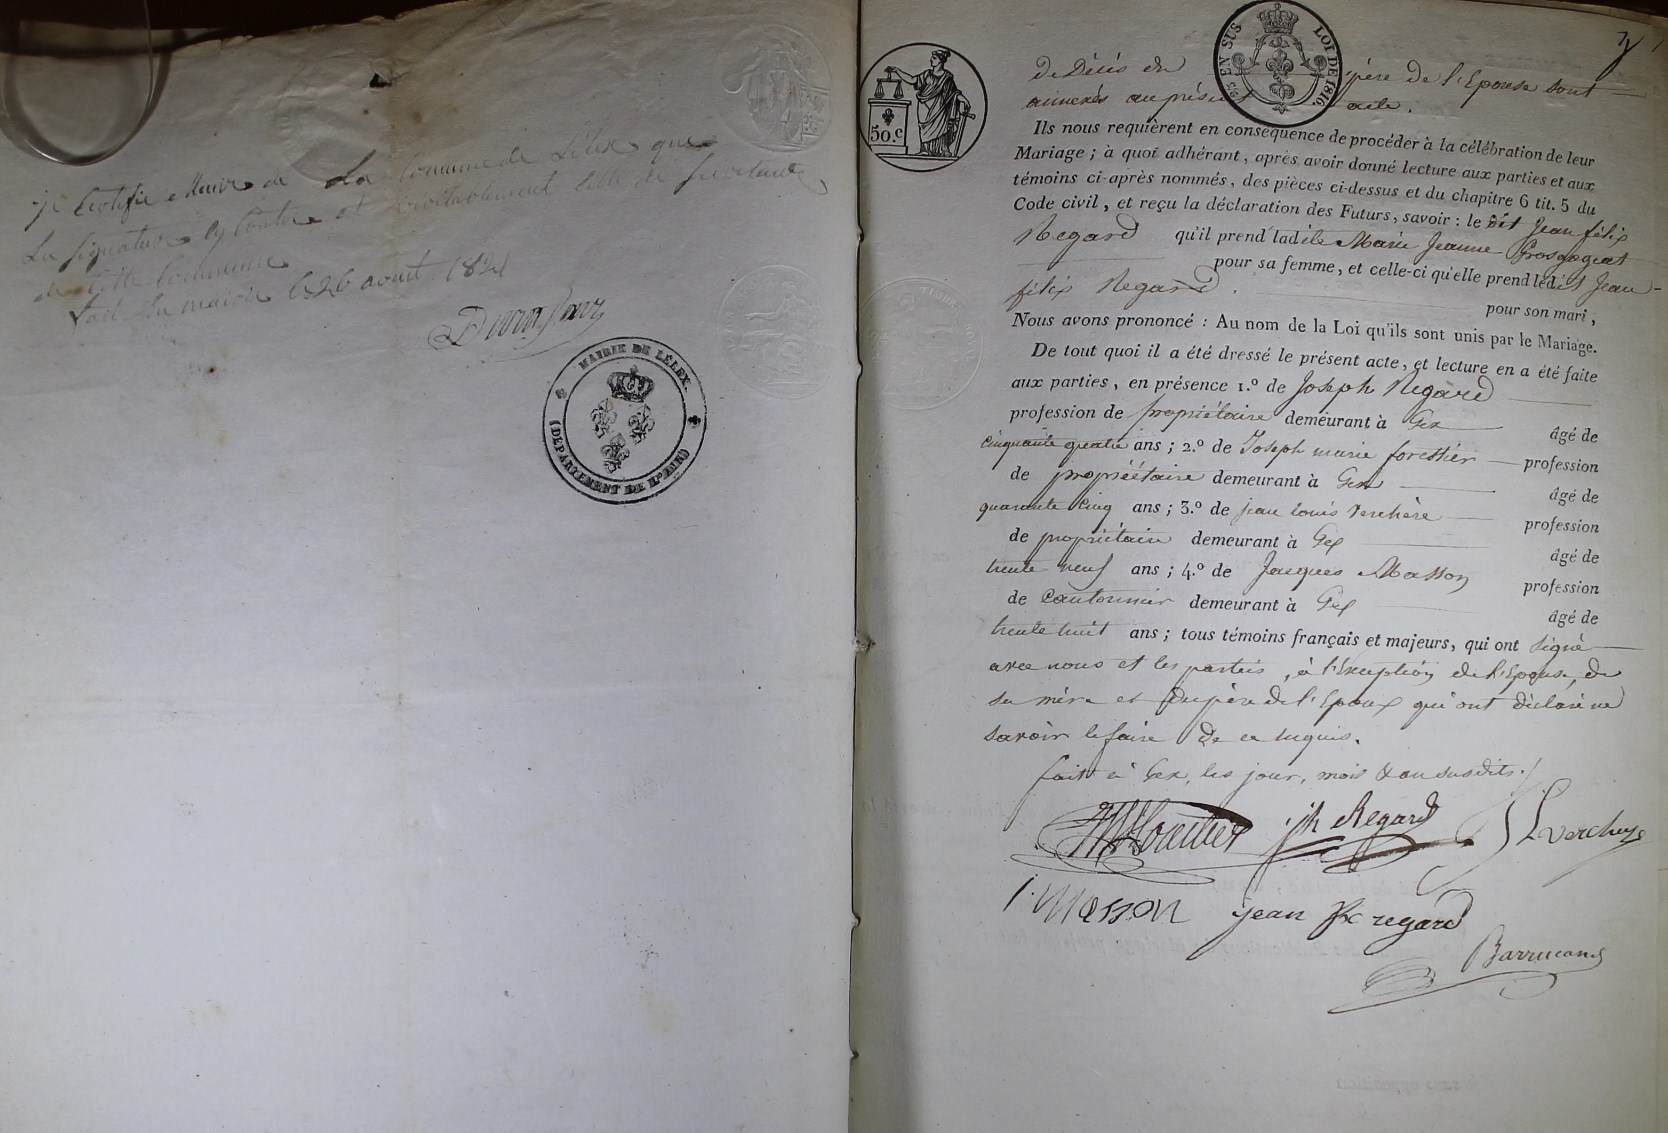 je Certifie Maire de La Commune de Lélex que
La signature cy Contre est véritablement celle du secretaire
de cette Commune
fait en mairie le 26 aout 1824
MAIRIE DE LÉLEX.
(DEPARTEMENT DE L'AIN)
EN SUS LOI DE 1816.
50.c
de Décès du père de l'Epouse sont
annexés au présent acte.
Ils nous requièrent en conséquence de procéder à la célébration de leur
Mariage ; à quoi adhérant, après avoir donné lecture aux parties et aux
témoins ci-après nommés, des pièces ci-dessus et du chapitre 6 tit. 5 du
Code civil, et reçu la déclaration des Futurs, savoir : le dit Jean félix
Regard qu'il prend ladite Marie Jeanne Grosgogeat
pour sa femme, et celle-ci qu'elle prend ledit Jean
félix Regard.
pour son mari,
Nous avons prononcé : Au nom de la Loi qu'ils sont unis par le Mariage.
De tout quoi il a été dressé le présent acte, et lecture en a été faite
aux parties, en présence 1.º de Joseph Regard
profession de propriétaire demeurant à Gex âgé de
cinquante quatre ans ; 2.º de Joseph marie forestier profession
de propriétaire demeurant à Gex âgé de
quarante cinq ans ; 3.º de jean louis Verchère profession
de propriétaire demeurant à Gex âgé de
trente neuf ans ; 4.º de Jacques Masson profession
de Cantonnier demeurant à Gex âgé de
trente huit ans ; tous témoins français et majeurs, qui ont signé
avec nous et les parties, à l'exception de l'Epouse, de
sa mère et du père de l'Epoux qui ont déclaré ne
savoir le faire de ce enquis.
fait à Gex, les jour, mois & an susdits./
jh Regard
J L verchere
j. Masson jean fx regard
Barrucand